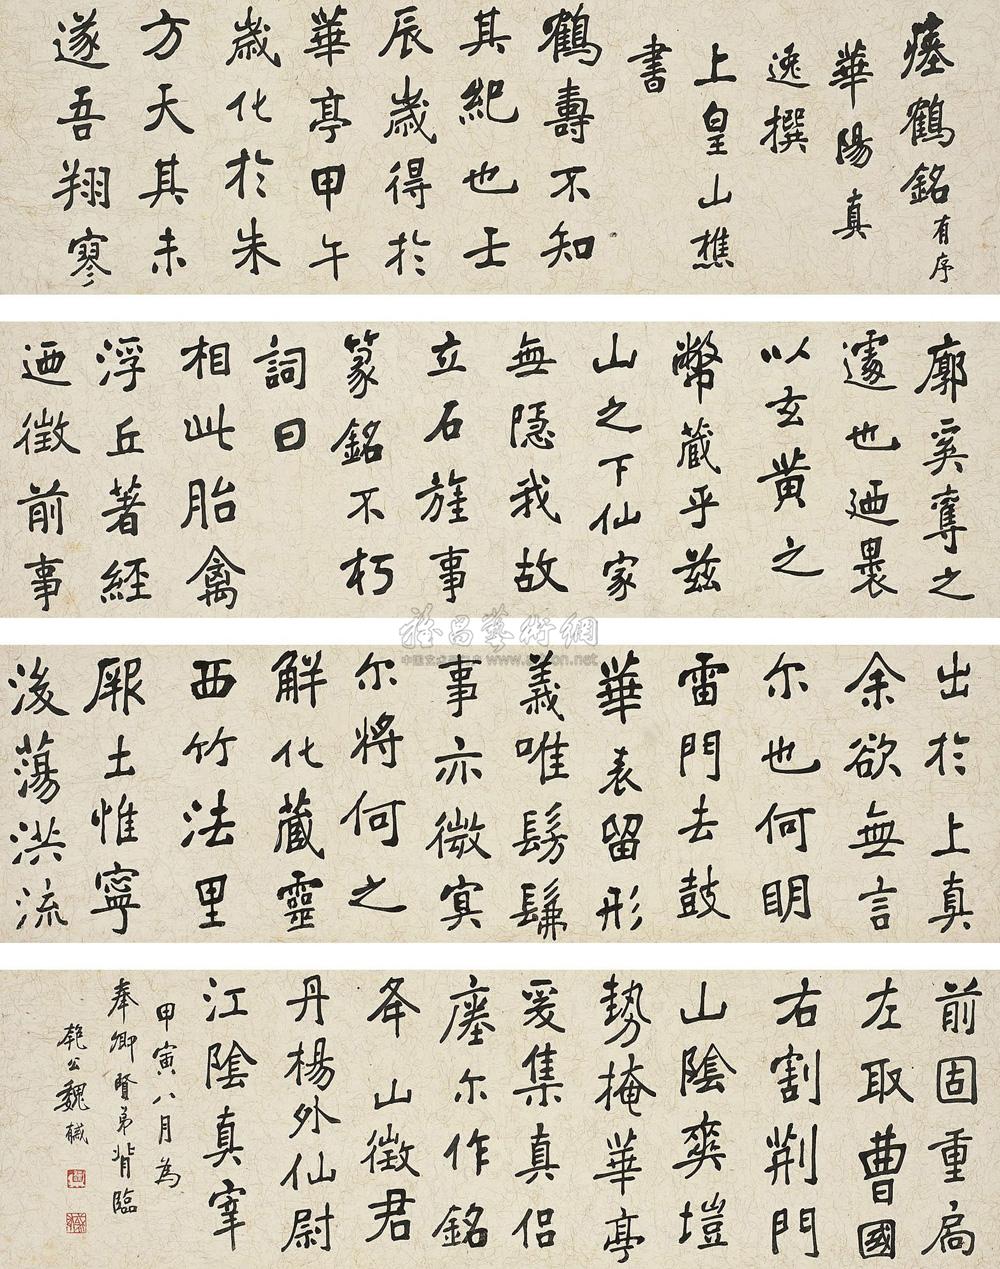 瘞鶴銘有序
華陽真
逸撰
上皇山樵
書
鶴壽不知
其紀也壬
辰歲得於
華亭甲午
歲化於朱
方天其未
遂吾翔寥
廓奚奪之
遽也迺裹
以玄黄之
幣藏乎兹
山之下仙家
無隱我故
立石旌事
篆銘不朽
詞曰
相此胎禽
浮丘著經
迺徵前事
出於上真
余欲無言
尔也何明
雷門去鼓
華表留形
義唯髣髴
事亦微冥
尔將何之
解化藏靈
西竹法里
厥土惟寧
後蕩洪流
前固重扃
左取曹國
右割荆門
山陰爽塏
勢掩華亭
爰集真侣
瘞尔作銘
夅山徵君
丹楊外仙尉
江陰真宰
甲寅八月為
奉卿賢弟背臨
匏公魏戫